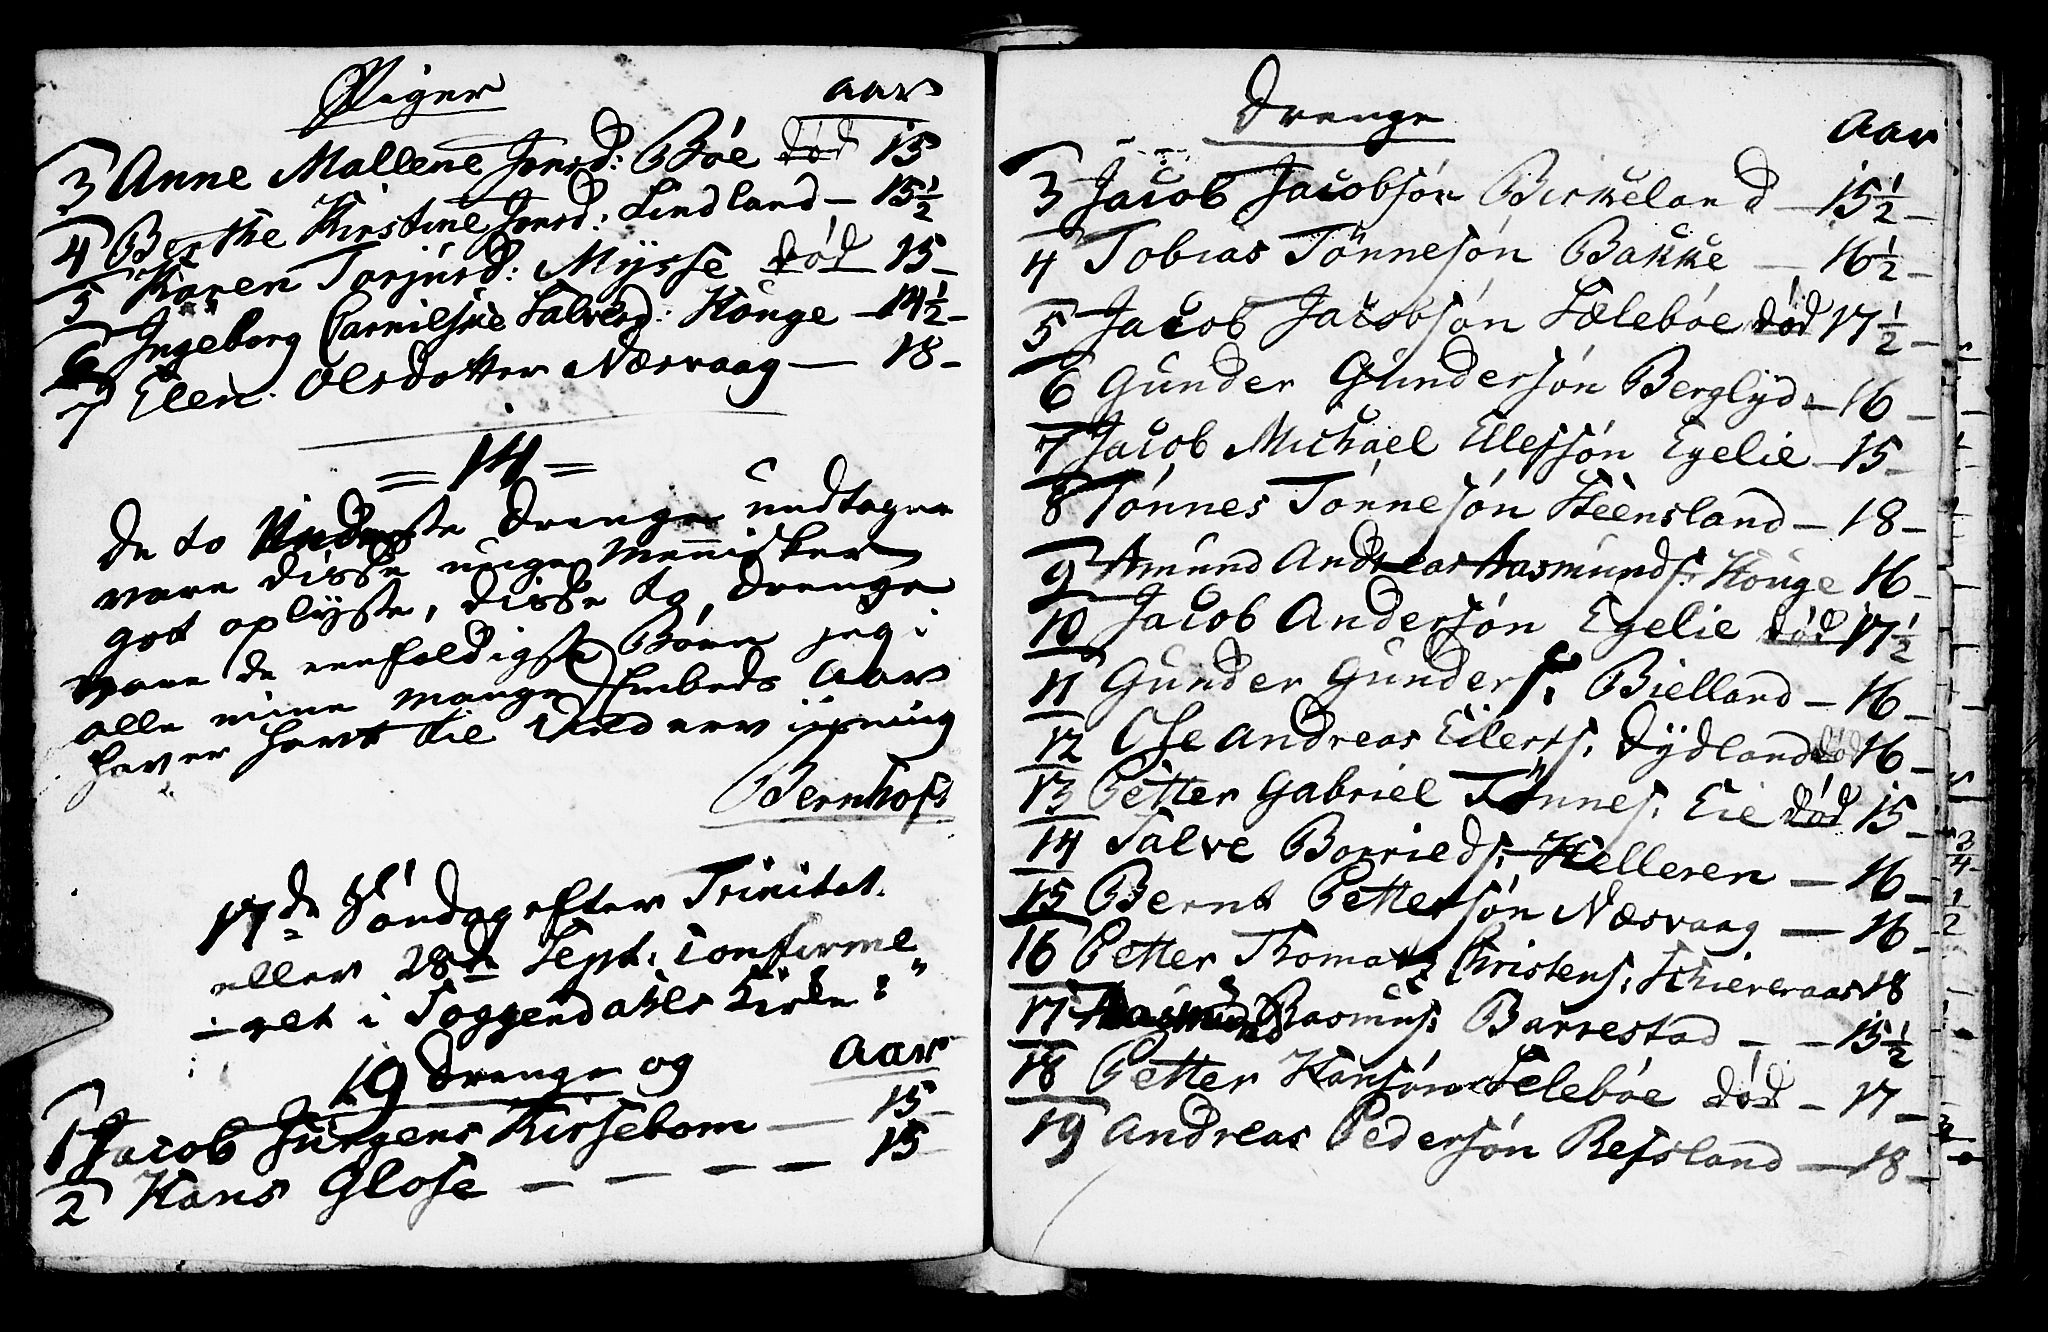 Piger Aar
3 Anne Mallene Jonsd: Böe död 15
4 Berthe Kirstine Jonsd: Lindland – 15½
5 Karen Torjusd: Mysse död 15 –
6 Ingeborg Carnilsine Salvesd: Houge – 14½ –
7 Elen Olsdatter Næsvaag — 18 –
= 14 =
De to Drenge undtagne
vare disse unge Mennisker
got oplyste, disse to Drenge
vare de eenfoldigste Börn jeg i
alle mine mange Embeds Aar
haver havt til Underviisning
Bernhoft
17de Söndag efter Trinitat.
eller 28de Sept: confirme
– ret i Soggendahls Kirke:
19 Drenge og Aar
1 Jacob Jürgens Kirsebom — 15 –
2 Hans Glose – – – – 15 –
Drenge Aar
3 Jacob Jacobsön Birkeland – 15½ –
4 Tobias Tönnesön Bakke — 16½ –
5 Jacob Jacobsön Sælebóe död 17½ –
6 Gunder Gundersön Berglyd – 16 –
7 Jacob Michael Ellefsön Egelie – 15 –
8 Tönnes Tönnesön Steensland – 18 –
9 Amund Andreas Aasmunds: Houge 16 –
10 Jacob Andersön Egelie död 17½
11 Gunder Gunders: Bielland – 16 –
12 Ole Andreas Eilerts: Dydland död 16 –
13 Petter Gabriel Tönnes: Eie död 15 –
14 Salve Borrieds: Helleren — 16 –
15 Bernt Pettersön Næsvaag — 16 –
16 Petter Thomas Christens: Skieveraas 18
17 Rasmus: Barrestad – – 15½
18 Petter Hansön Selebóe död – 17 –
19 Andreas Pedersön Refsland — 18 –